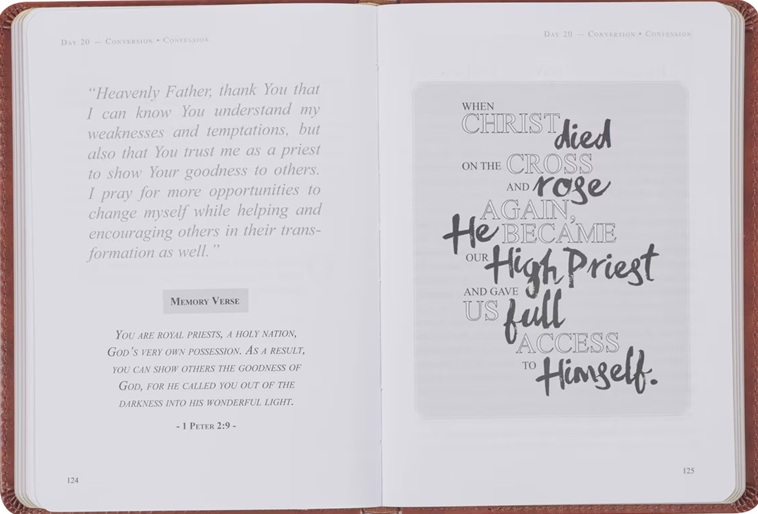 Day 20 — Conversion • Confession
“Heavenly Father, thank You that
I can know You understand my
weaknesses and temptations, but
also that You trust me as a priest
to show Your goodness to others.
I pray for more opportunities to
change myself while helping and
encouraging others in their trans-
formation as well.”
Memory Verse
You are royal priests, a holy nation,
God’s very own possession. As a result,
you can show others the goodness of
God, for he called you out of the
darkness into his wonderful light.
- 1 Peter 2:9 -
124
Day 20 — Conversion • Confession
WHEN
CHRIST died
ON THE CROSS
AND rose
AGAIN,
He BECAME
OUR High Priest
AND GAVE
US full
ACCESS
TO Himself.
125